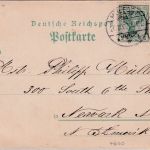 Deutsche Reichspost
Postkarte
Philipp Müller
300 South 6th
Newark N
N. Amerik